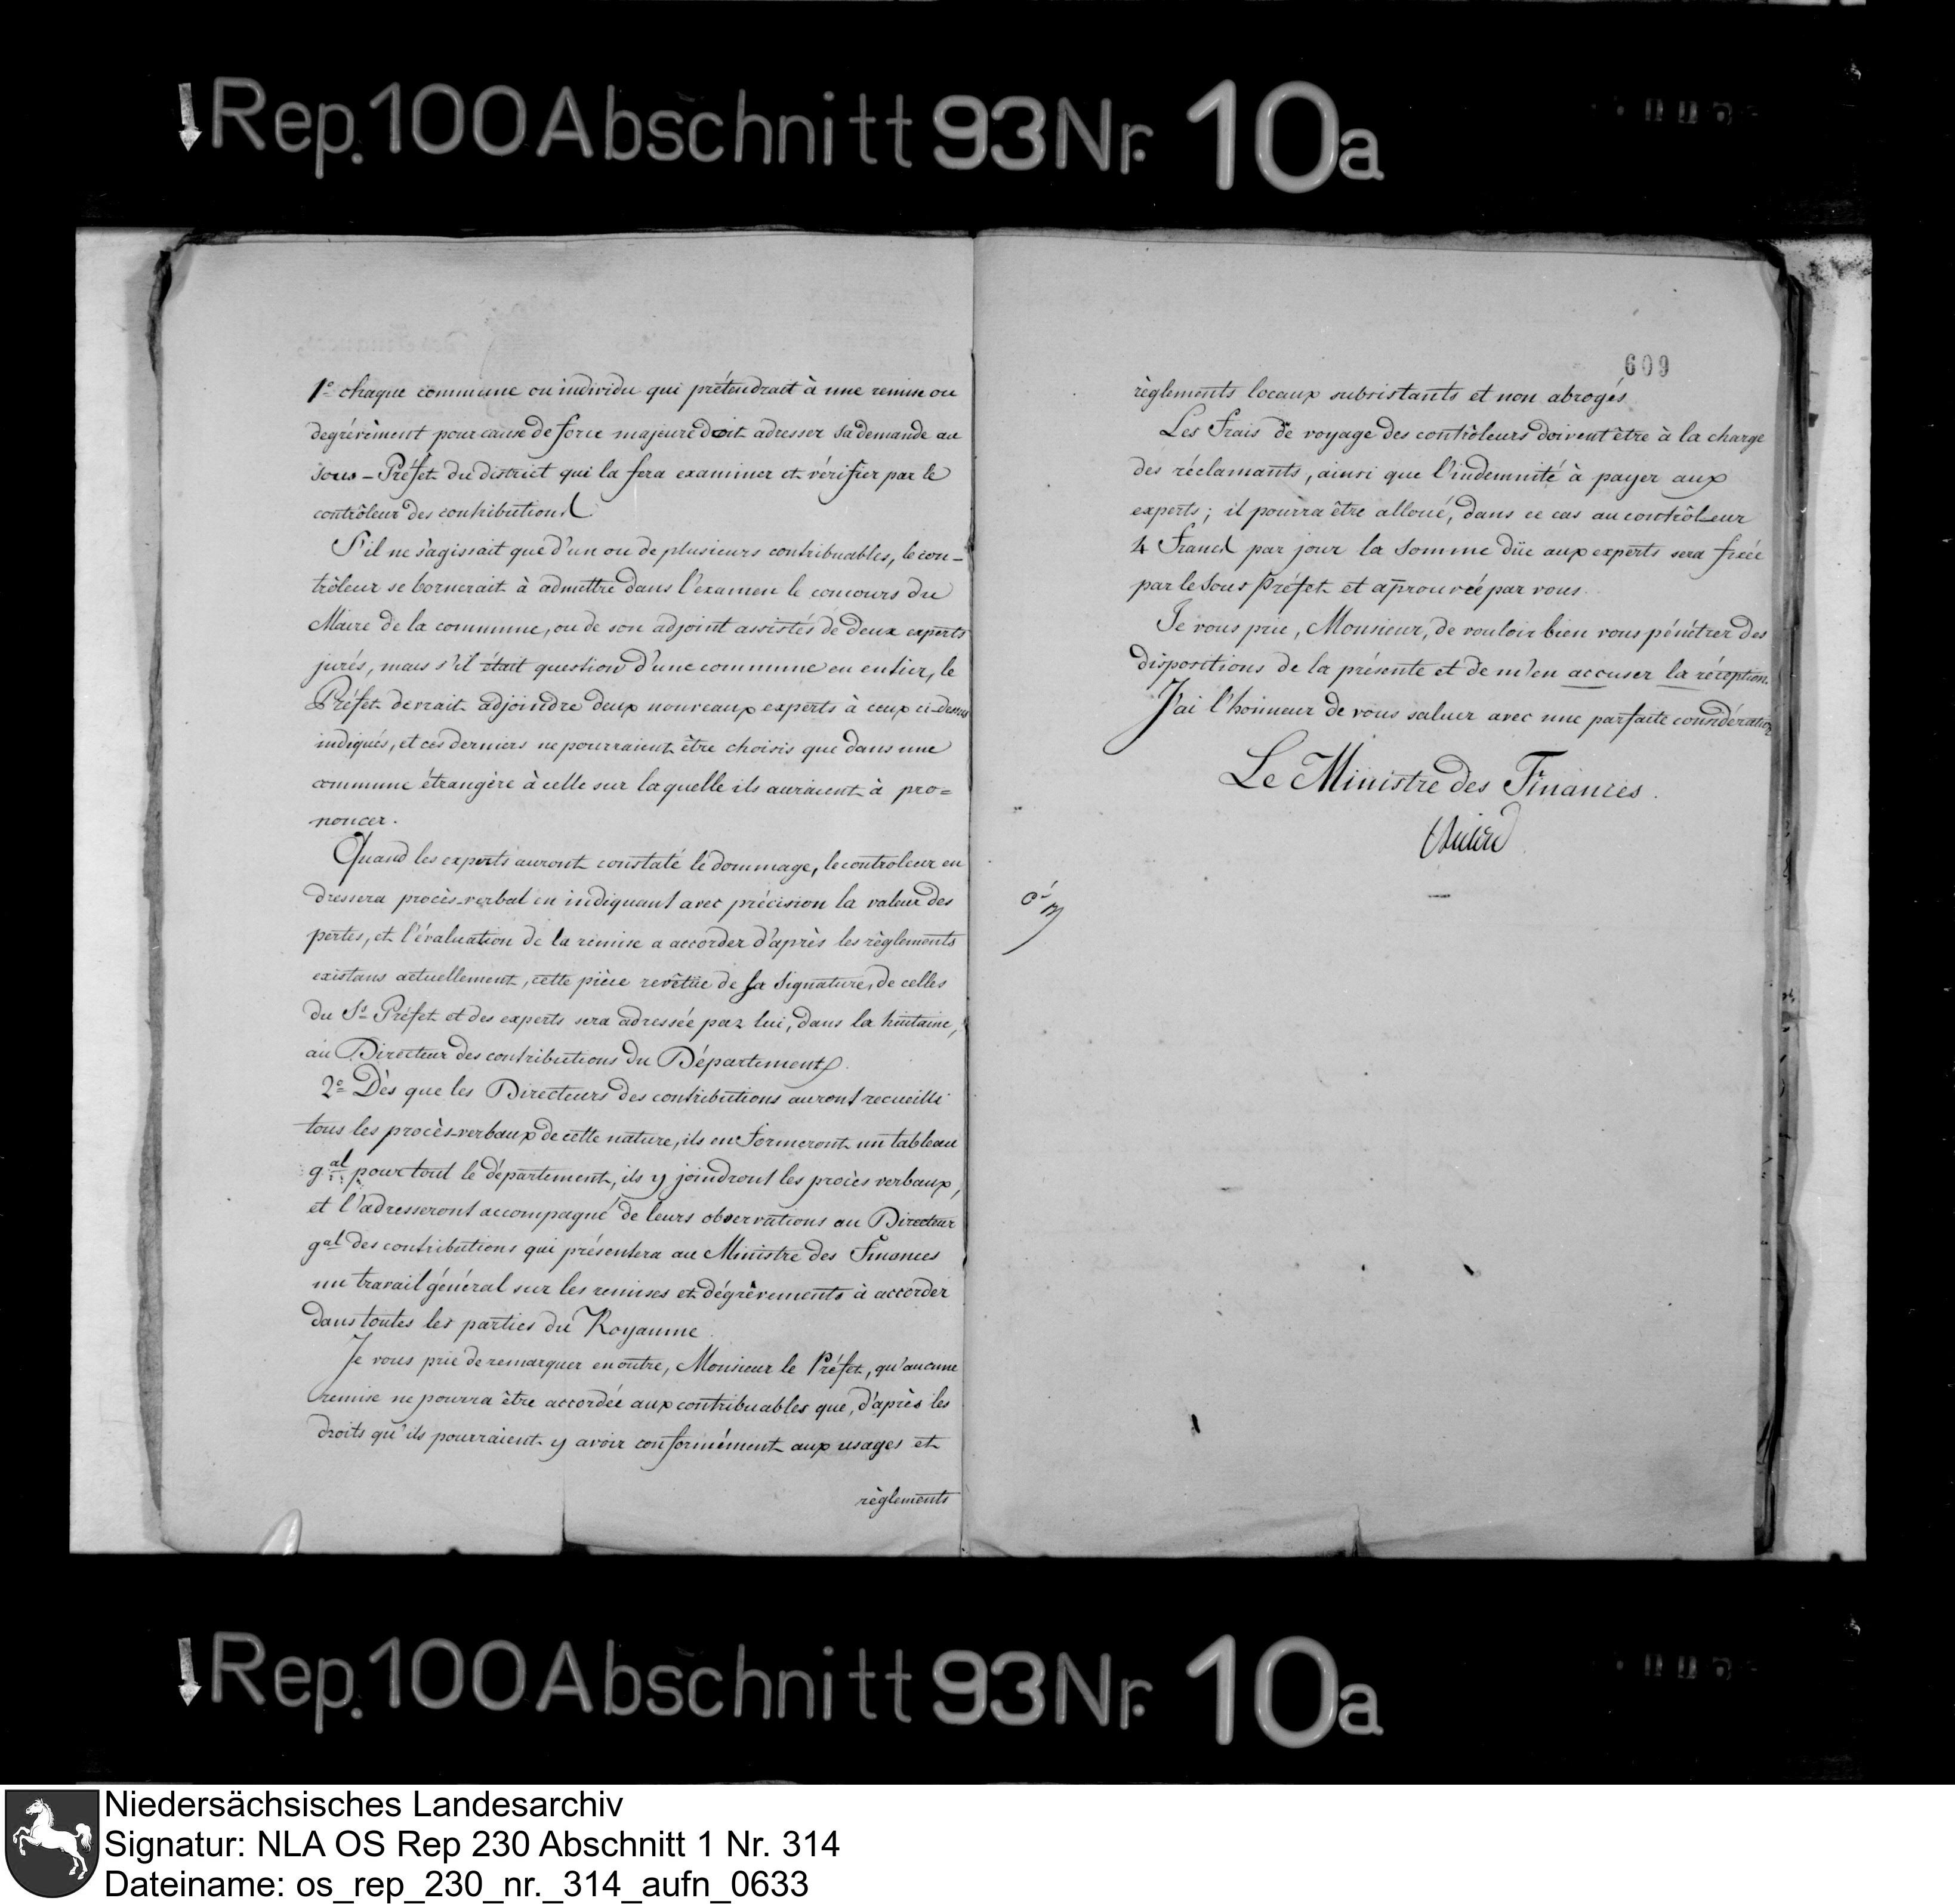 Rep. 100 Abschnitt 93 Nr. 10a
1º chaque commune ou individu qui prétendrait à une remise ou
degrévement pour cause de force majeure doit adresser sa demande au
sous-Préfet du district qui la fera examiner et vérifier par le
contrôleur des contributions.
S'il ne s'agissait que d'un ou de plusieurs contribuables, le con-
trôleur se bornerait à admettre dans l'examen le concours du
Maire de la commune, ou de son adjoint assistés de deux experts
jurés, mais s'il était question d'une commune en entier, le
Préfet devrait adjoindre deux nouveaux experts à ceux ci-dessus
indiqués, et ces derniers ne pourraient être choisis que dans une
commune étrangère à celle sur laquelle ils auraient à pro=
noncer.
Quand les experts auront constaté le dommage, le controleur en
dressera procès-verbal en indiquant avec précision la valeur des
pertes, et l'évaluation de la remise a accorder d'après les règlements
existans actuellement, cette pièce revêtüe de sa signature, de celles
du Ss Préfet et des experts sera adressée par lui, dans la huitaine,
au Directeur des contributions du Département.
2º Dès que les Directeurs des contributions auront recueilli
tous les procès-verbaux de cette nature, ils en formeront un tableau
gal pour tout le département, ils y joindront les procès verbaux,
et l'adresseront accompagné de leurs observations au Directeur
gal des contributions qui présentera au Ministre des Finances
un travail général sur les remises et dégrèvements à accorder
dans toutes les parties du Royaume.
Je vous prie de remarquer en outre, Monsieur le Préfet, qu'aucune
remise ne pourra être accordée aux contribuables que, d'après les
droits qu'ils pourraient y avoir conformément aux usages et
règlements
609
règlements locaux subsistants et non abrogés.
Les Frais de voyage des contrôleurs doivent être à la charge
des réclamants, ainsi que l'indemnité à payer aux
experts; il pourra être alloué, dans ce cas au contrôleur
4 Francs par jour la somme düe aux experts sera fixée
par le Sous Préfet et aprouvée par vous.
Je vous prie, Monsieur, de vouloir bien vous pénétrer des
dispositions de la présente et de m'en accuser la réception.
J'ai l'honneur de vous saluer avec une parfaite considération
Le Ministre des Finances.
Rep. 100 Abschnitt 93 Nr. 10a
Niedersächsisches Landesarchiv
Signatur: NLA OS Rep 230 Abschnitt 1 Nr. 314
Dateiname: os_rep_230_nr._314_aufn_0633